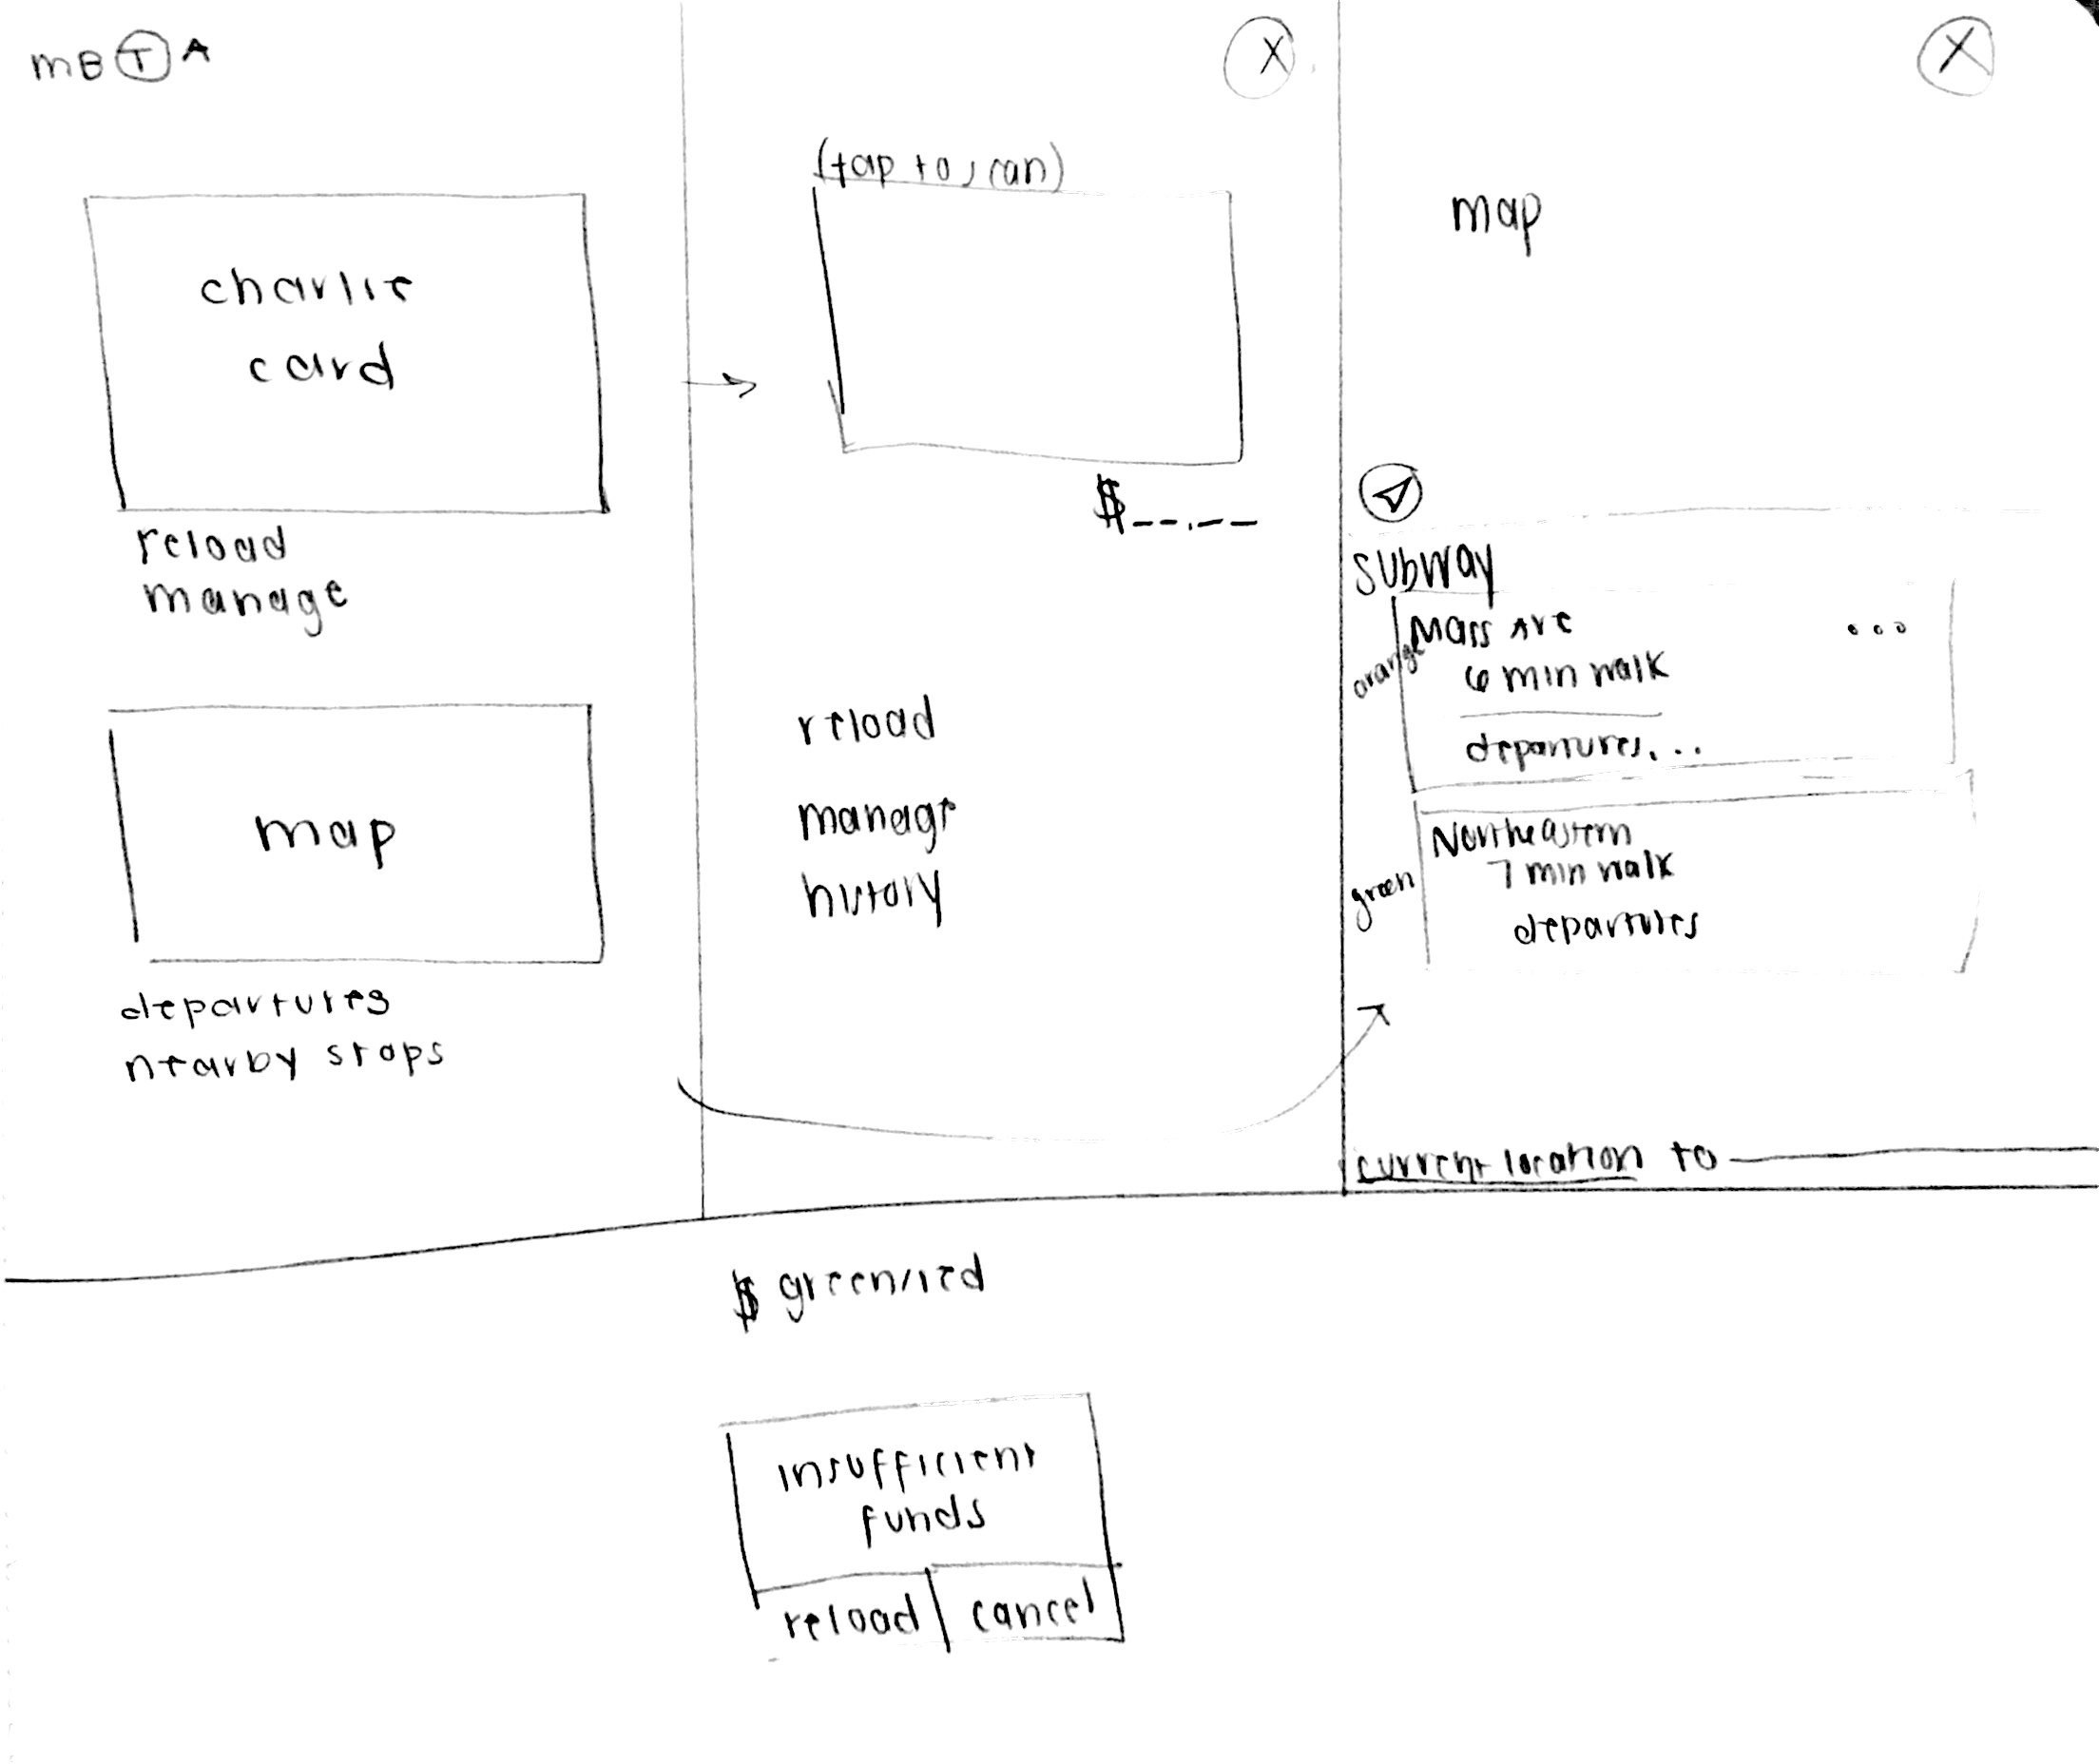 mBTA
charlie
card
reload
manage
map
departures
nearby stops
X
(tap to scan)
$__.__
reload
manage
history
X
map
subway
orange
Mass Ave
...
6 min walk
departures...
green
Northeastern
7 min walk
departures
current location to
$ green/red
insufficient
funds
reload
cancel